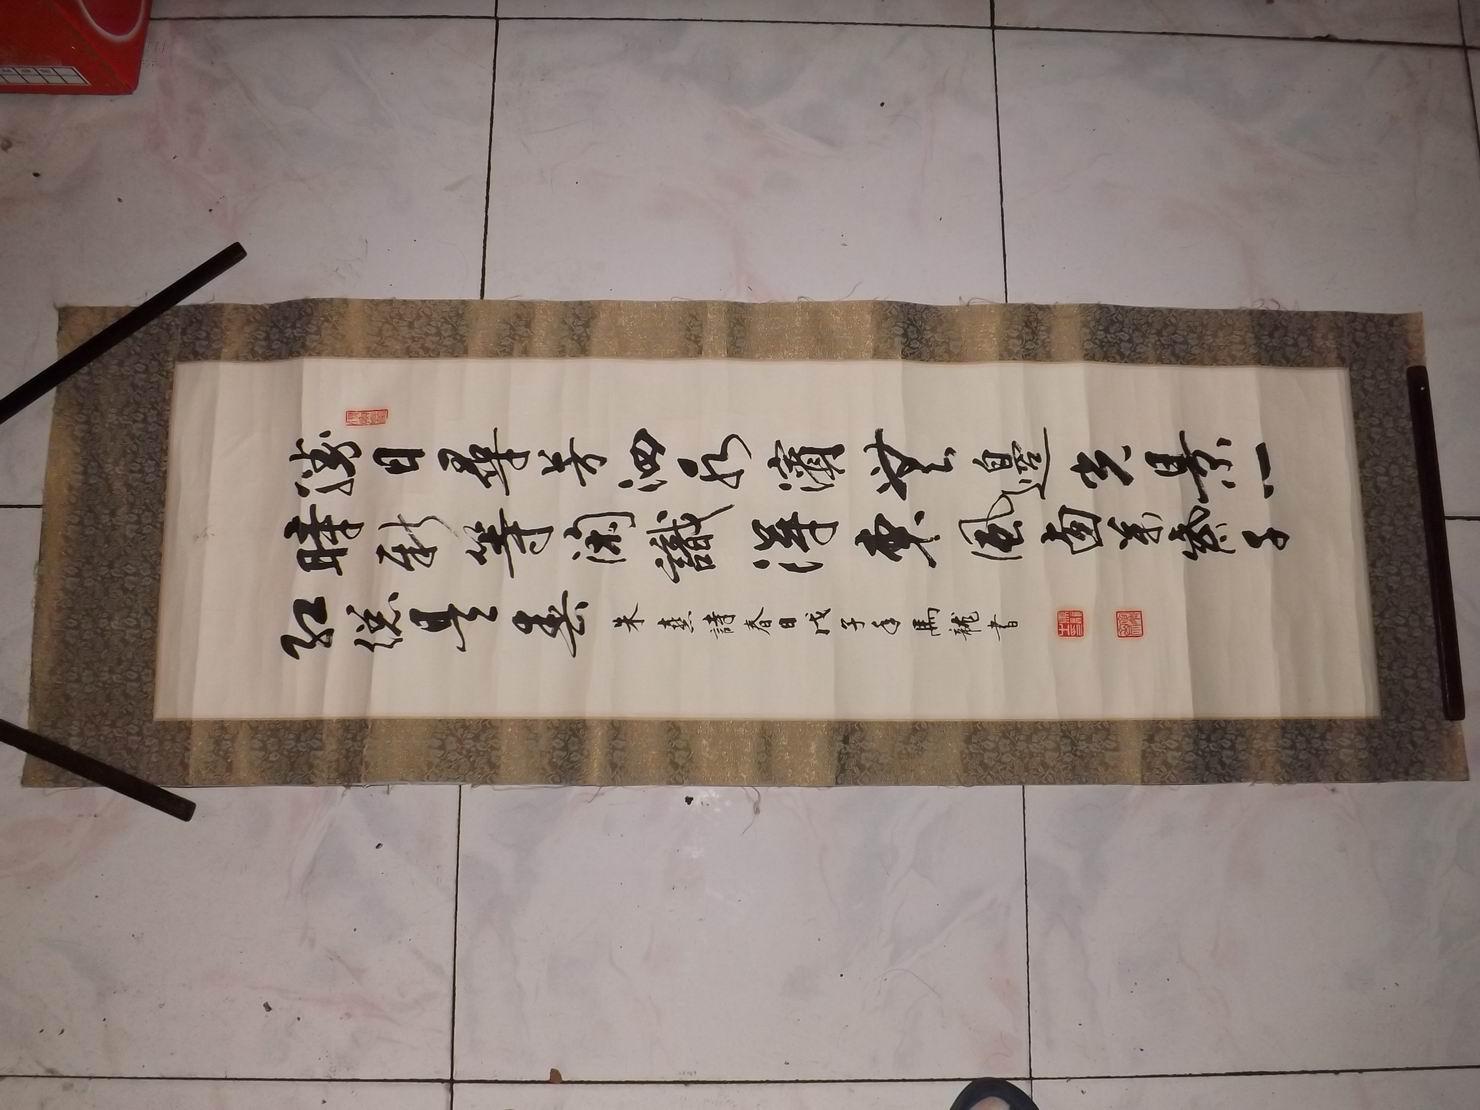 勝日尋芳泗水濱無邊光景一
時新等閑識得東風面萬紫千
紅總是春
朱熹詩春日戊子年馬龍書